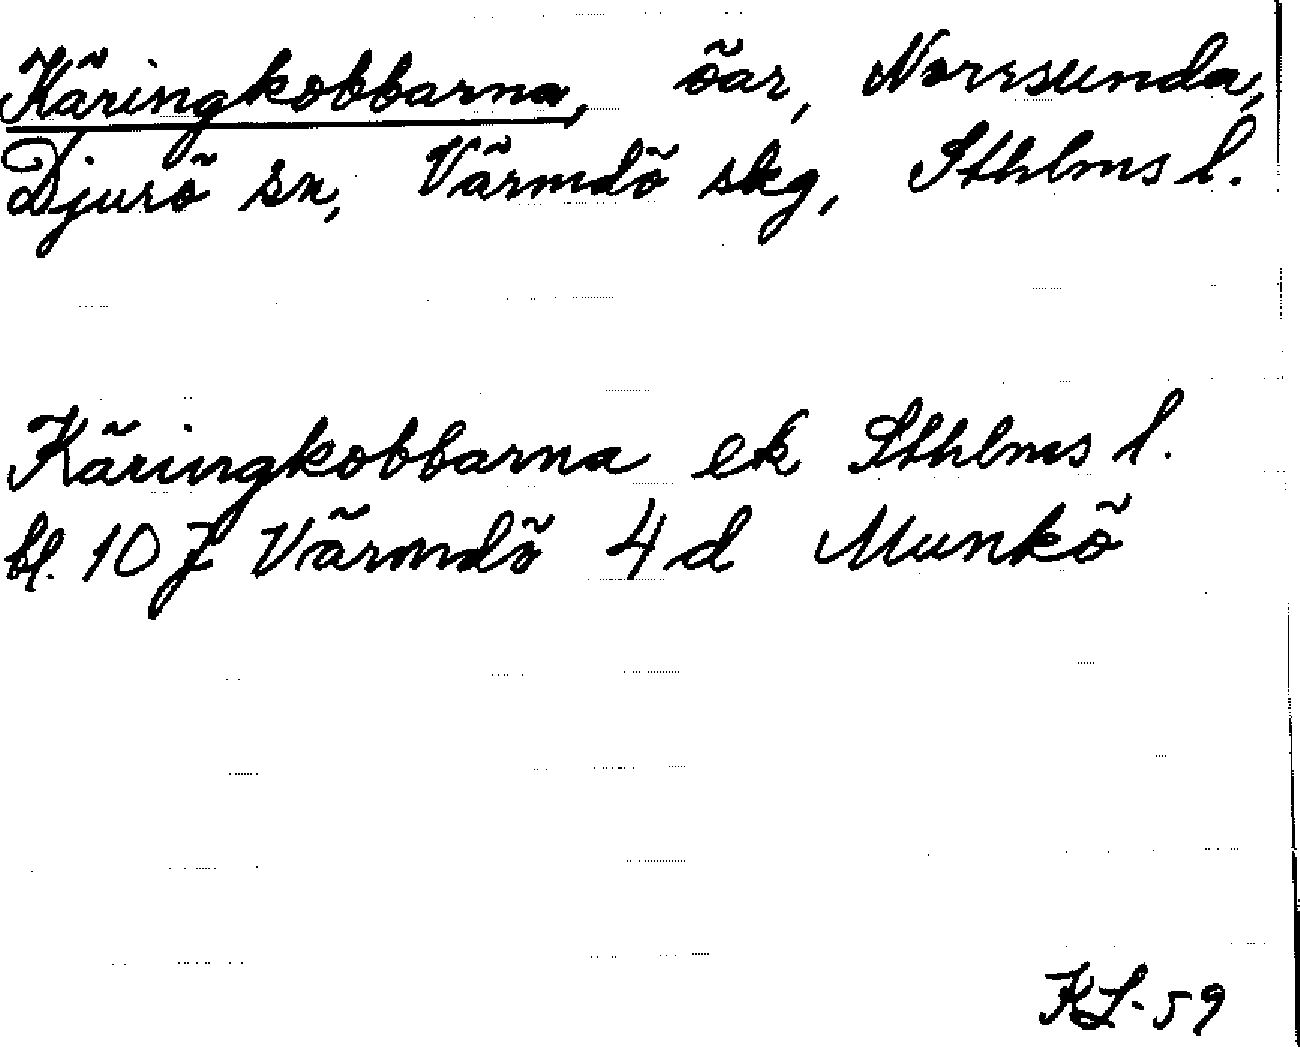 Käringkobbarna, öar, Norrsunda,
Djurö sn, Värmdö skg, Sthlms l.
Käringkobbarna ek Sthlms l.
bl. 107 Värmdö 4d Munkö
KL-59